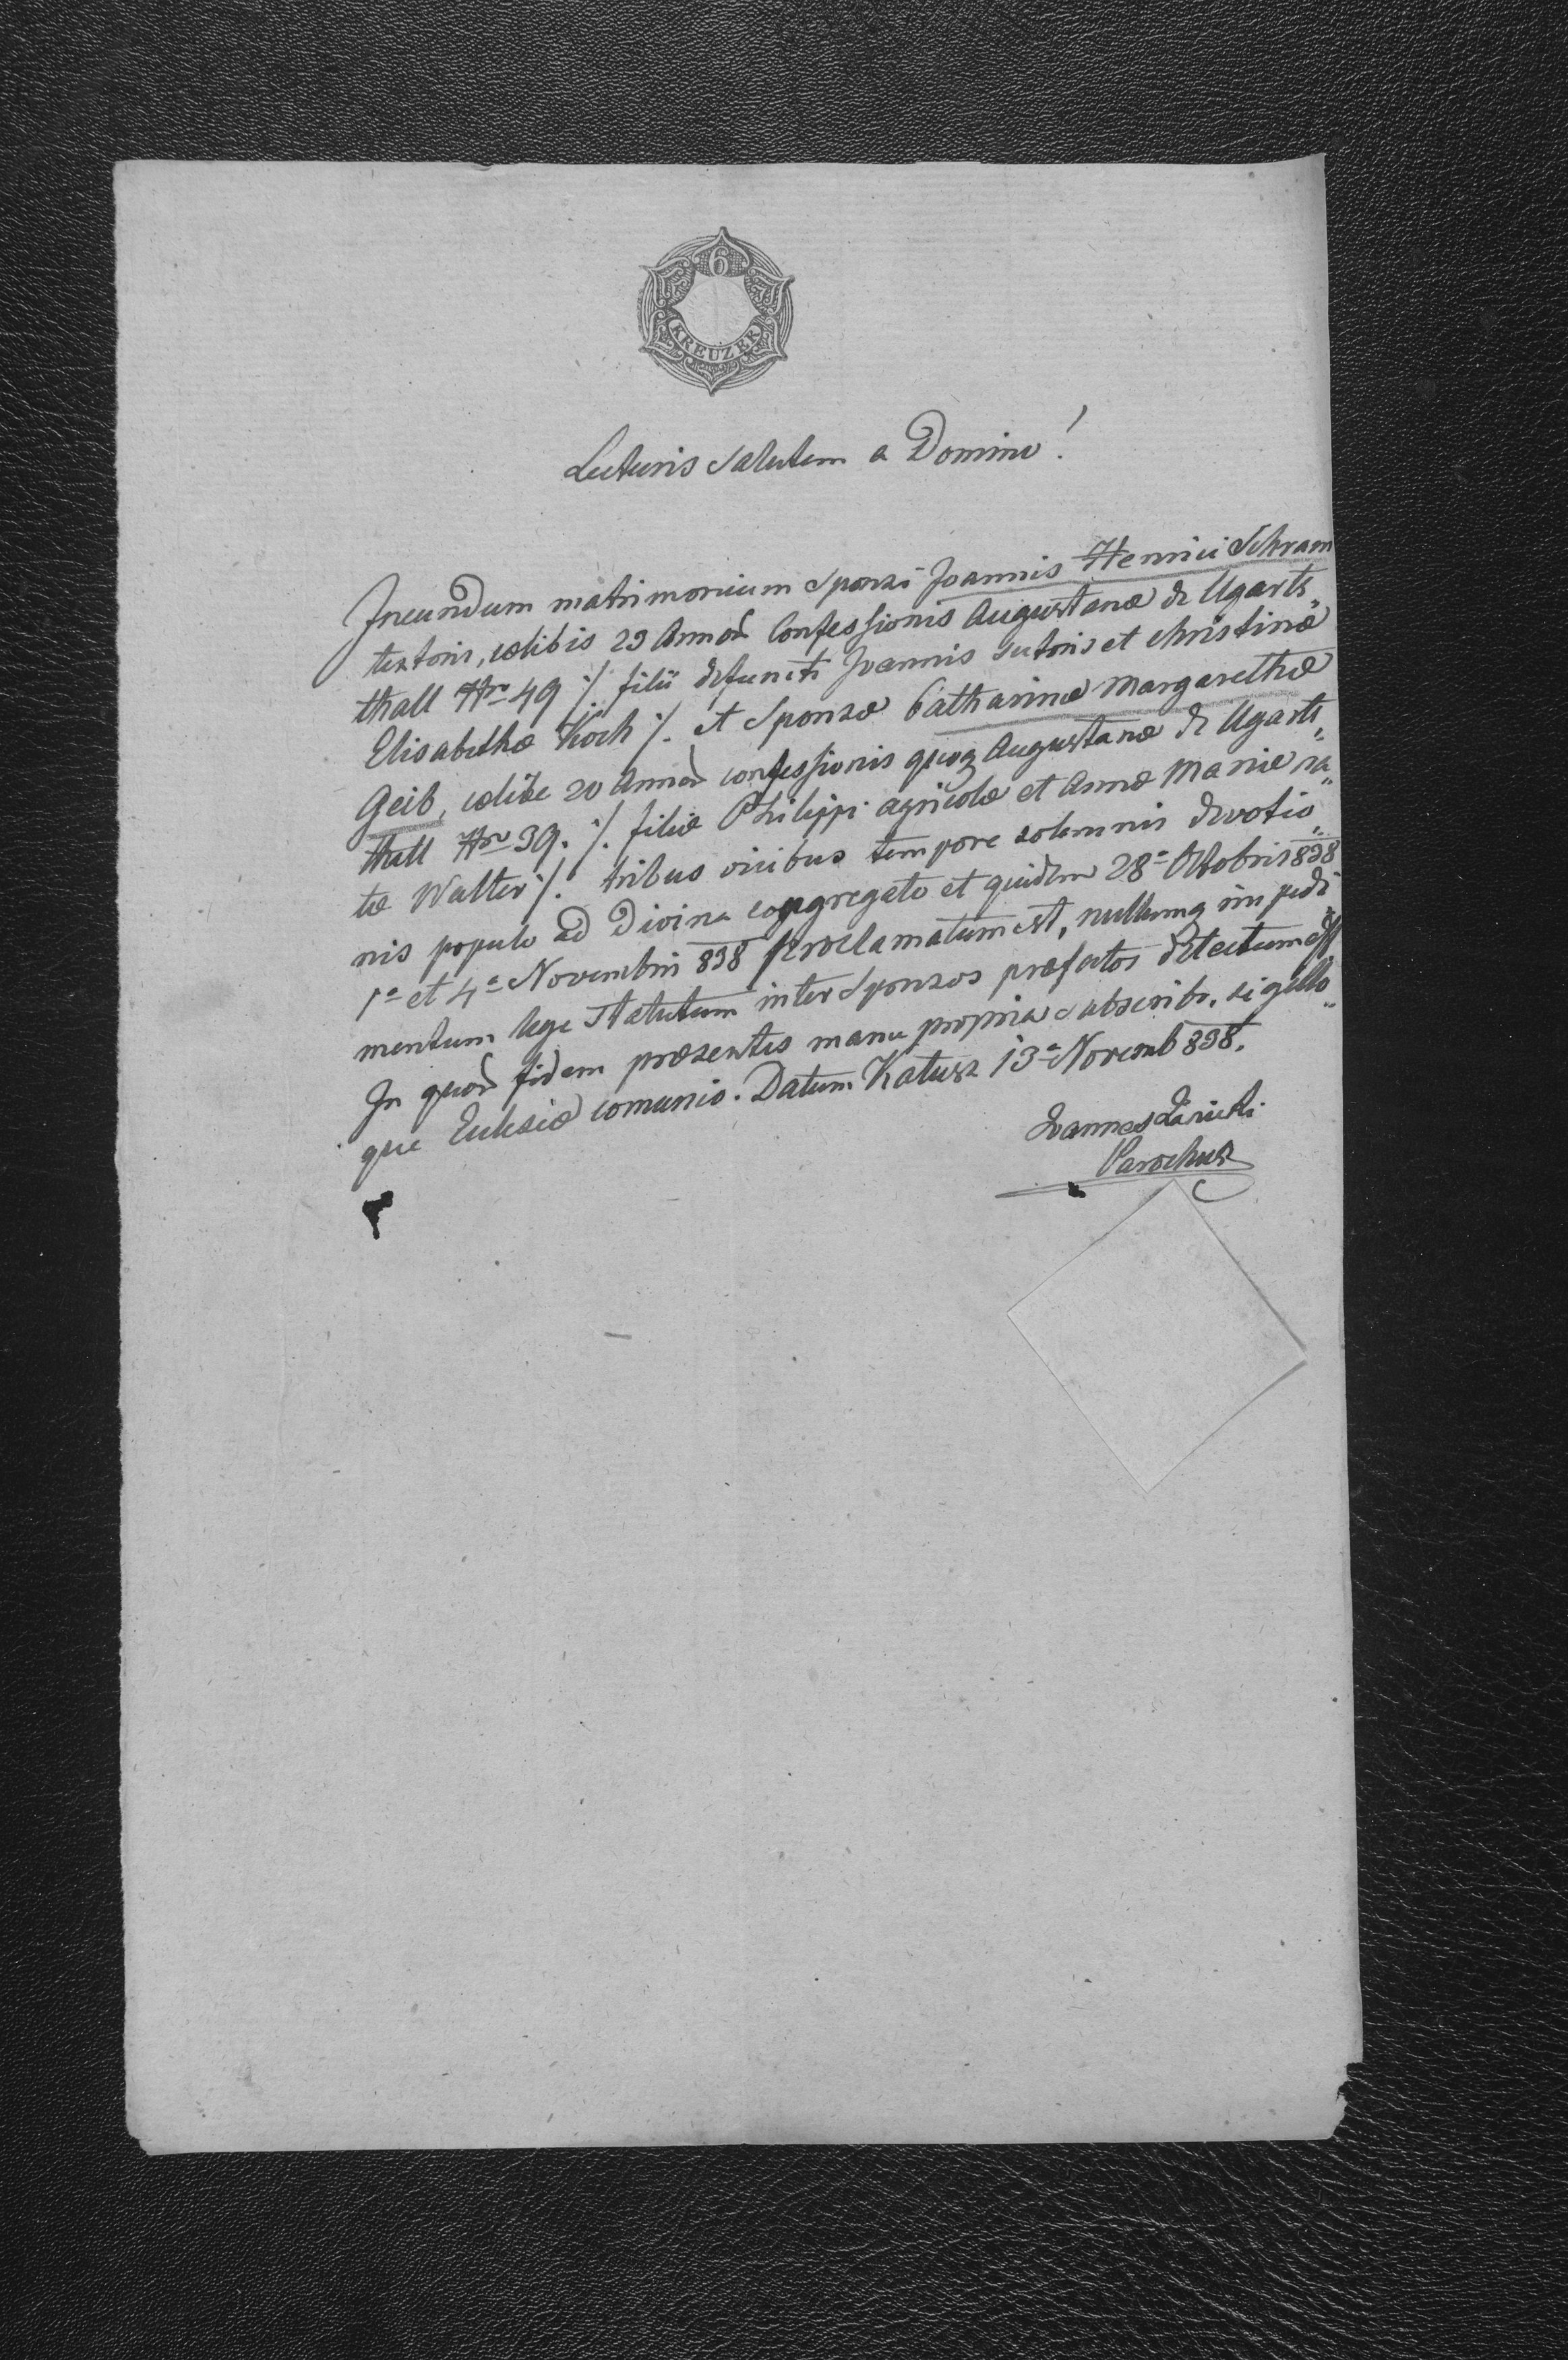 6
KREUZER
Lecturis salutem a Domino!
Ineundum matrimonium Sponsi Joannis Henrici Schram
textoris, cœlibis 29 Annor Confessionis Augustanæ de Ugarts„
thall Nro 49 ·/. filii defuncti Joannis sutoris et Christinæ
Elisabethæ Koch ·/. et Sponsæ Catharinæ Margarethæ
Geib, cœlibe 20 Annor confessionis quoq Augustanæ de Ugarts„
thall Nro 39. ·/. filiæ Philippi agricolæ et Annæ Mariæ na„
tæ Walter ·/. tribus vicibus tempore solemnis devotio„
nis populo ad Divina congregato et quidem 28a Octobris 838
1a et 4a Novembris 838 proclamatum est, nullumq impedi„
mentum lege statutum inter Sponsos præfatos detectum est
In quor fidem præsentes manu propria subscribo, sigillo„
que Eclesiæ comunio. Datum Katusz 13a Novemb 838.
Parochus